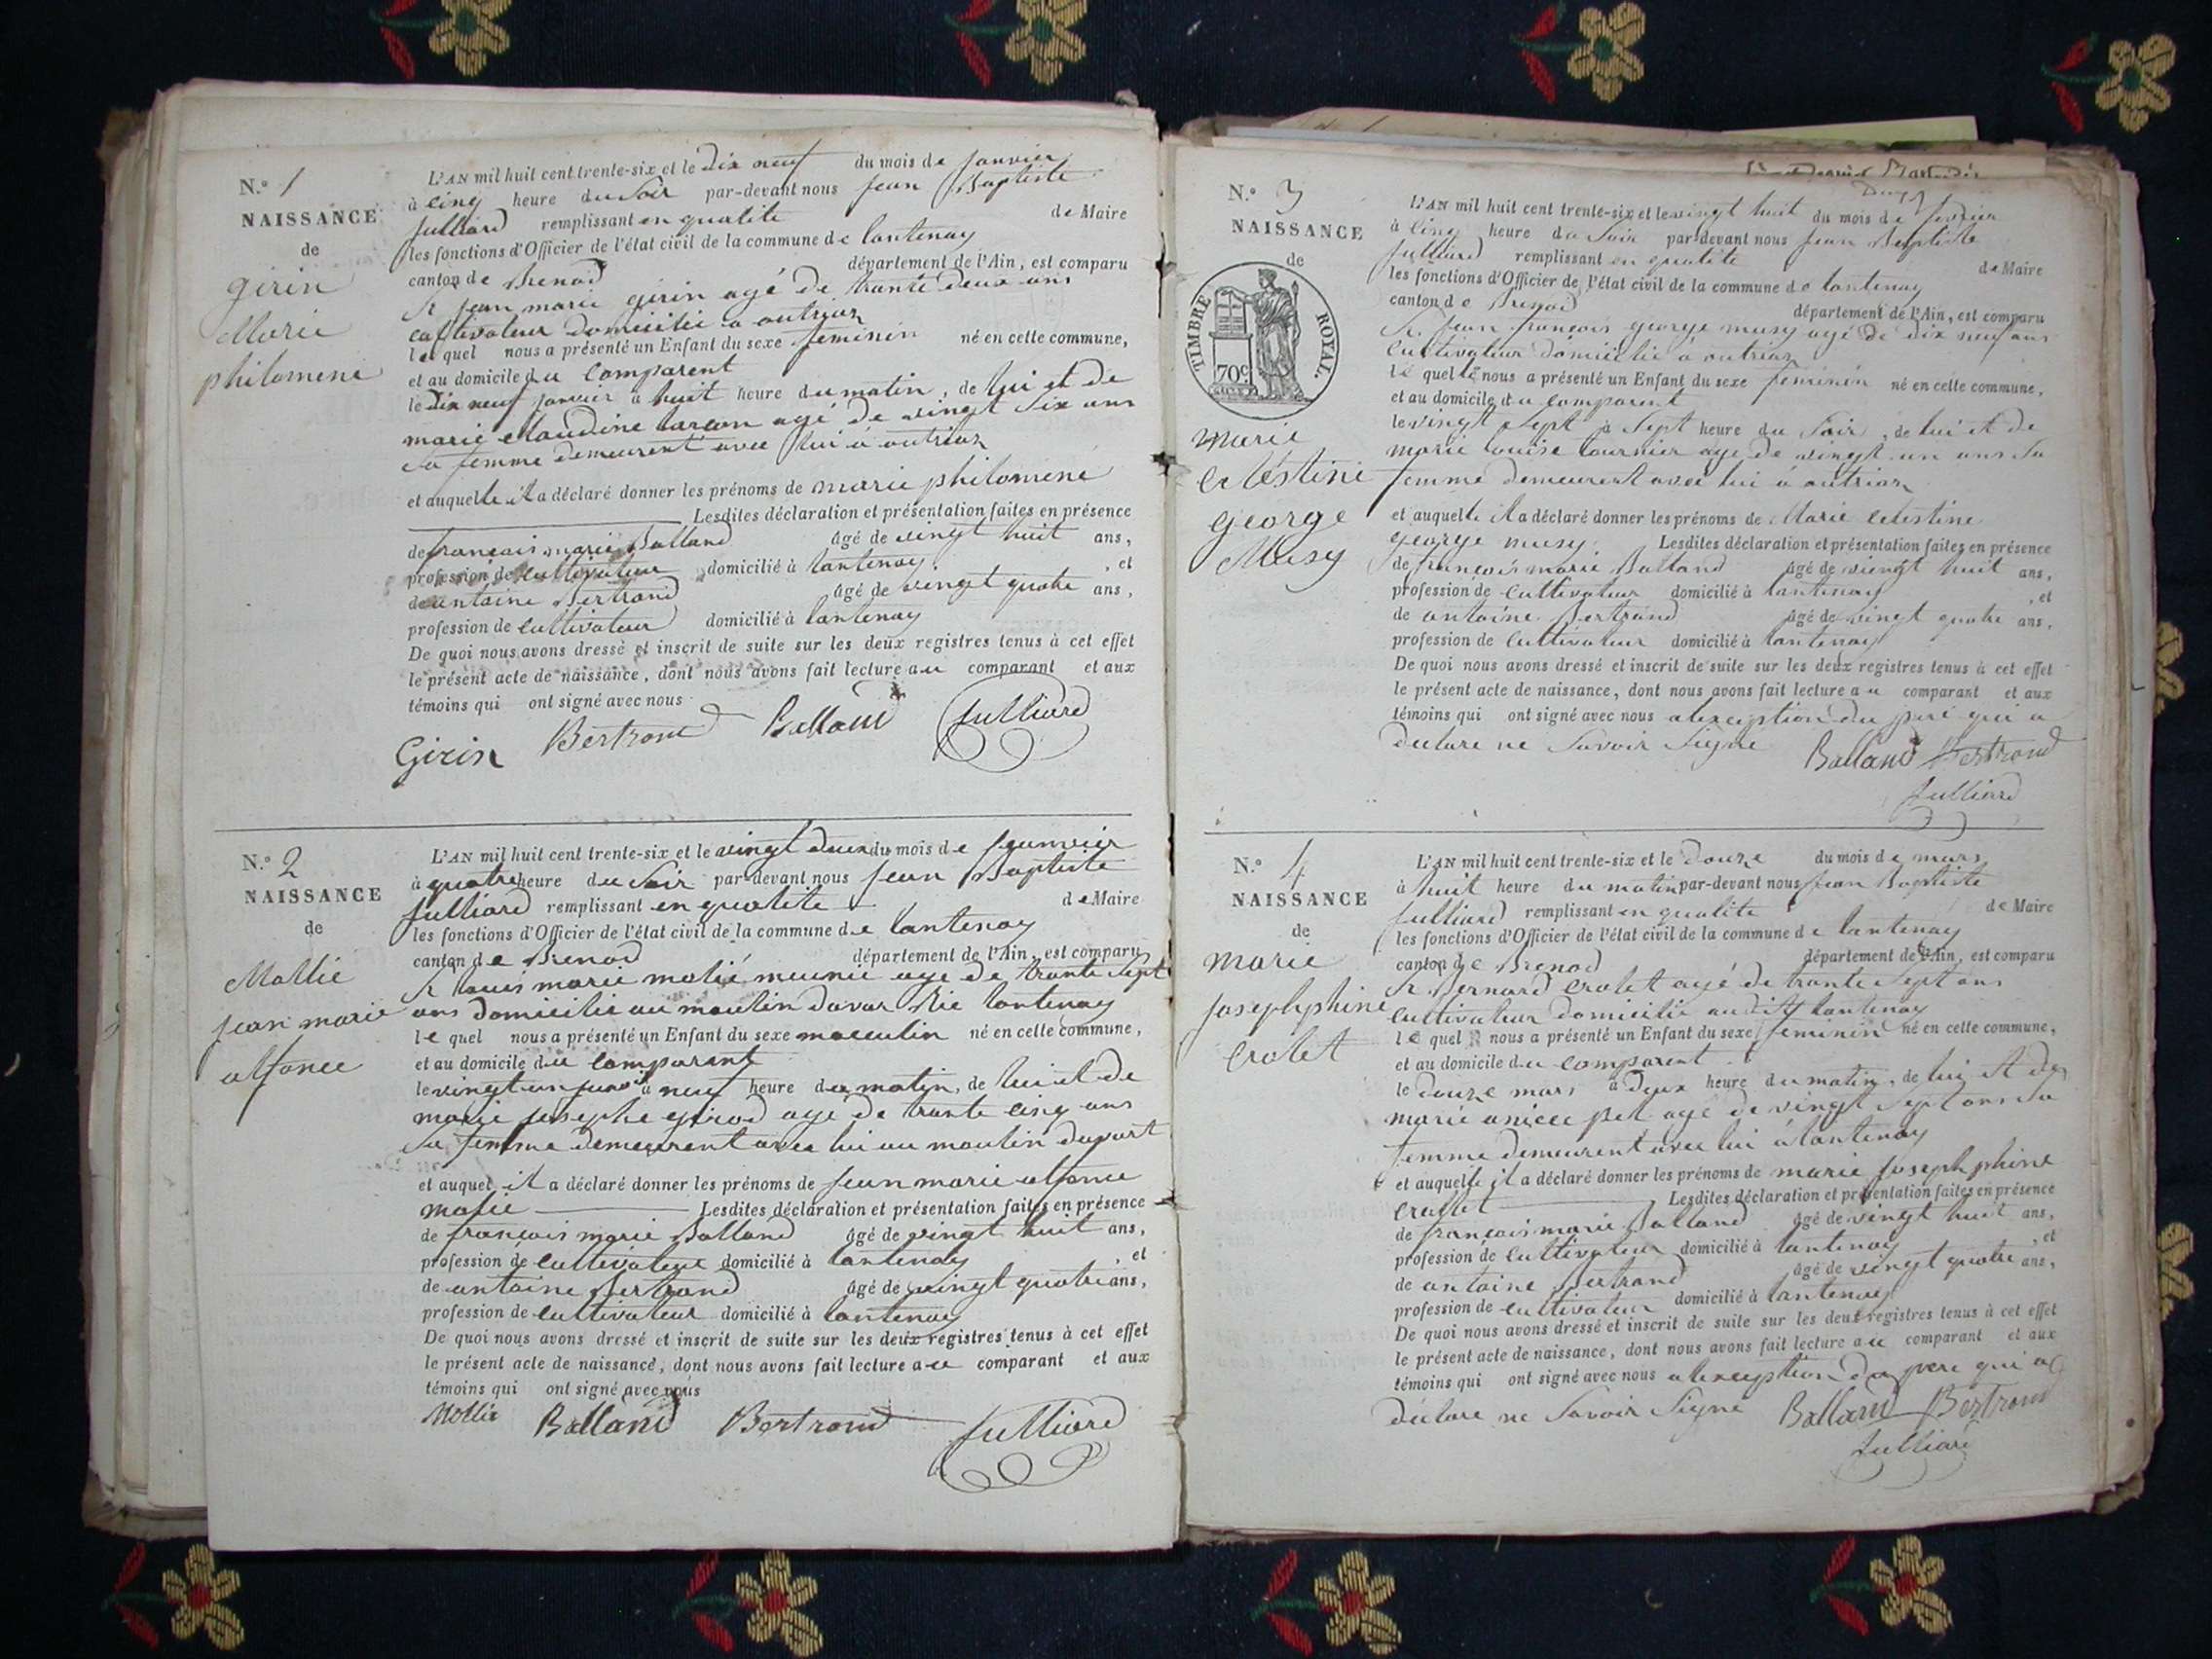 N.o 1
NAISSANCE
de
girin
Marie
philomene
L'AN mil huit cent trente-six et le dix neuf du mois de janvier
à cinq heure du Soir par-devant nous jean Baptiste
julliard remplissant en qualité de Maire
les fonctions d'Officier de l'état civil de la commune de lantenay
canton de Brenod département de l'Ain, est comparu
Sr jean marie girin agé de trante deux ans
cultivateur domicilié a outriaz
le quel nous a présenté un Enfant du sexe feminin né en cette commune,
et au domicile du comparent
le dix neuf janvier à huit heure du matin, de lui et de
marie claudine tarcon agé de vingt Six ans
Sa femme demeurent avec lui a outriaz
et auquelle il a déclaré donner les prénoms de marie philomene
Lesdites déclaration et présentation faites en présence
de francois marie Balland âgé de vingt huit ans,
profession de cultivateur domicilié à lantenay, et
de antoine Bertrand âgé de vingt quatre ans,
profession de cultivateur domicilié à lantenay
De quoi nous avons dressé et inscrit de suite sur les deux registres tenus à cet effet
le présent acte de naissance, dont nous avons fait lecture au comparant et aux
témoins qui ont signé avec nous
Girin Bertrand Balland Julliard
N.o 2
NAISSANCE
de
Mollie
jean marie
alfonce
L'AN mil huit cent trente-six et le vingt deux du mois de jeanvier
à quatre heure du Soir par-devant nous jean Baptiste
julliard remplissant en qualité de Maire
les fonctions d'Officier de l'état civil de la commune de lantenay
canton de Brenod département de l'Ain, est comparu
Sr louis marie molié meunié age de trante Sept
ans domicilié au moulin davar lantenay
le quel nous a présenté un Enfant du sexe masculin né en cette commune,
et au domicile du comparent
le vingt un à neuf heure du matin, de lui et de
marie josephe girod agé de trante cinq ans
Sa femme demeurent avec lui au moulin
et auquel il a déclaré donner les prénoms de jean marie alfonce
molie Lesdites déclaration et présentation faites en présence
de francois marie Balland âgé de vingt huit ans,
profession de cultivateur domicilié à lantenay, et
de antoine Bertrand âgé de vingt quatre ans,
profession de cultivateur domicilié à lantenay
De quoi nous avons dressé et inscrit de suite sur les deux registres tenus à cet effet
le présent acte de naissance, dont nous avons fait lecture au comparant et aux
témoins qui ont signé avec nous
Mollie Balland Bertrand Julliard
N.o 3
NAISSANCE
de
TIMBRE ROYAL.
70c
marie
celestine
george
Musy
L'AN mil huit cent trente-six et le vingt huit du mois de fevrier
à cinq heure du Soir par-devant nous jean Baptiste
julliard remplissant en qualité de Maire
les fonctions d'Officier de l'état civil de la commune de lantenay
canton de Brenod département de l'Ain, est comparu
Sr jean francois george musy agé de dix neuf ans
cultivateur domicilié à outriaz
le quel nous a présenté un Enfant du sexe feminin né en cette commune,
et au domicile du comparent
le vingt Sept à Sept heure du Soir, de lui et de
marie louise tournier age de vingt un ans Sa
femme demeurent avec lui à outriaz
et auquelle il a déclaré donner les prénoms de Marie celestine
george musy. Lesdites déclaration et présentation faites en présence
de francois marie Balland âgé de vingt huit ans,
profession de cultivateur domicilié à lantenay, et
de antoine Bertrand âgé de vingt quatre ans,
profession de cultivateur domicilié à lantenay
De quoi nous avons dressé et inscrit de suite sur les deux registres tenus à cet effet
le présent acte de naissance, dont nous avons fait lecture au comparant et aux
témoins qui ont signé avec nous alexception du pere qui a
declare ne Savoir Signe Balland Bertrand
Julliard
N.o 4
NAISSANCE
de
marie
josephphine
crolet
L'AN mil huit cent trente-six et le douze du mois de mars
à huit heure du matin par-devant nous jean Baptiste
julliard remplissant en qualité de Maire
les fonctions d'Officier de l'état civil de la commune de lantenay
canton de Brenod département de l'Ain, est comparu
Sr Bernard crolet agé de trante Sept ans
cultivateur domicilié audit lantenay
le quel nous a présenté un Enfant du sexe feminin né en cette commune,
et au domicile du comparent
le douze mars à deux heure du matin, de lui et de
marie anicee pet agé de vingt Sept ans Sa
femme demeurent avec lui à lantenay
et auquelle il a déclaré donner les prénoms de marie joseph phine
crollet Lesdites déclaration et présentation faites en présence
de francois marie Balland âgé de vingt huit ans,
profession de cultivateur domicilié à lantenay, et
de antoine Bertrand âgé de vingt quatre ans,
profession de cultivateur domicilié à lantenay
De quoi nous avons dressé et inscrit de suite sur les deux registres tenus à cet effet
le présent acte de naissance, dont nous avons fait lecture au comparant et aux
témoins qui ont signé avec nous alexception du pere qui a
declare ne Savoir Signe Balland Bertrand
Julliard